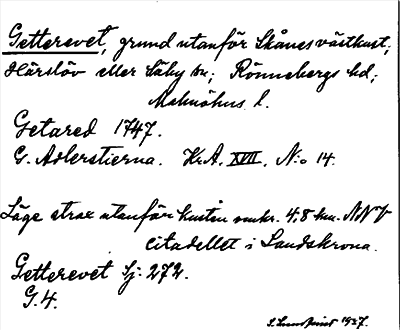 Getterevet, grund utanför Skånes västkust;
Härslöv eller Säby sn; Rönnebergs hd;
Malmöhus l.
Getared 1747.
G. Adlerstierna. Kr.A. XVII. N:o 14.
Läge strax utanför kusten omkr. 4.8 km. NNV
citadellet i Landskrona.
Getterevet Sj: 272.
G.4.
1937.